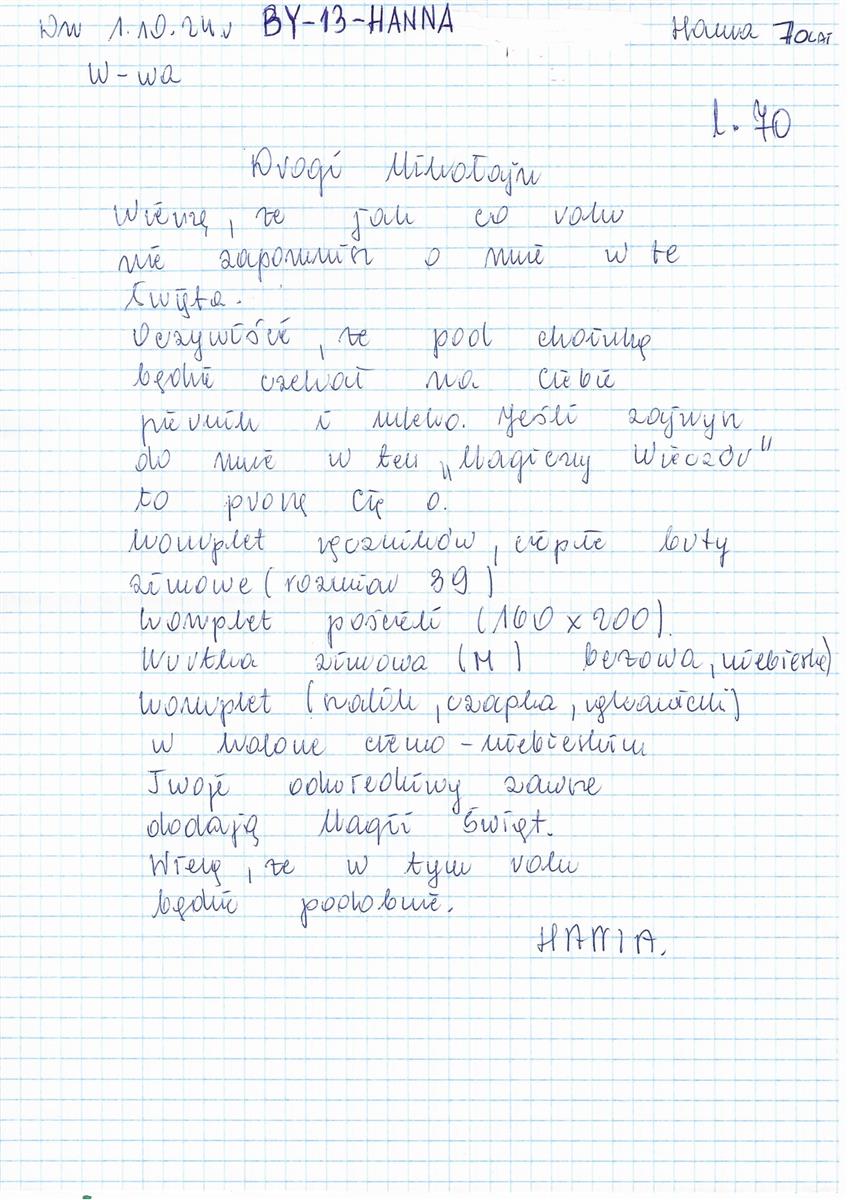 Dn 1.10.24r BY-13-HANNA Hanna 70LAT
W-wa
l. 70
Drogi Mikołaju
Wierzę, że jak co roku
nie zapomnisz o mnie w te
Święta.
Oczywiście, że pod choinką
będzie czekał na Ciebie
piernik i mleko. Jeśli zajrzysz
do mnie w ten „Magiczny Wieczór"
to proszę Cię o.
komplet ręczników, ciepłe buty
zimowe (rozmiar 39)
komplet pościeli (160 x 200).
Kurtka zimowa (M) beżowa, niebieska)
komplet (szalik, czapka, rękawiczki)
w kolorze ciemno-niebieskim
Twoje odwiedziny zawsze
dodają Magii Świąt.
Wierzę, że w tym roku
będzie podobnie.
HANIA.